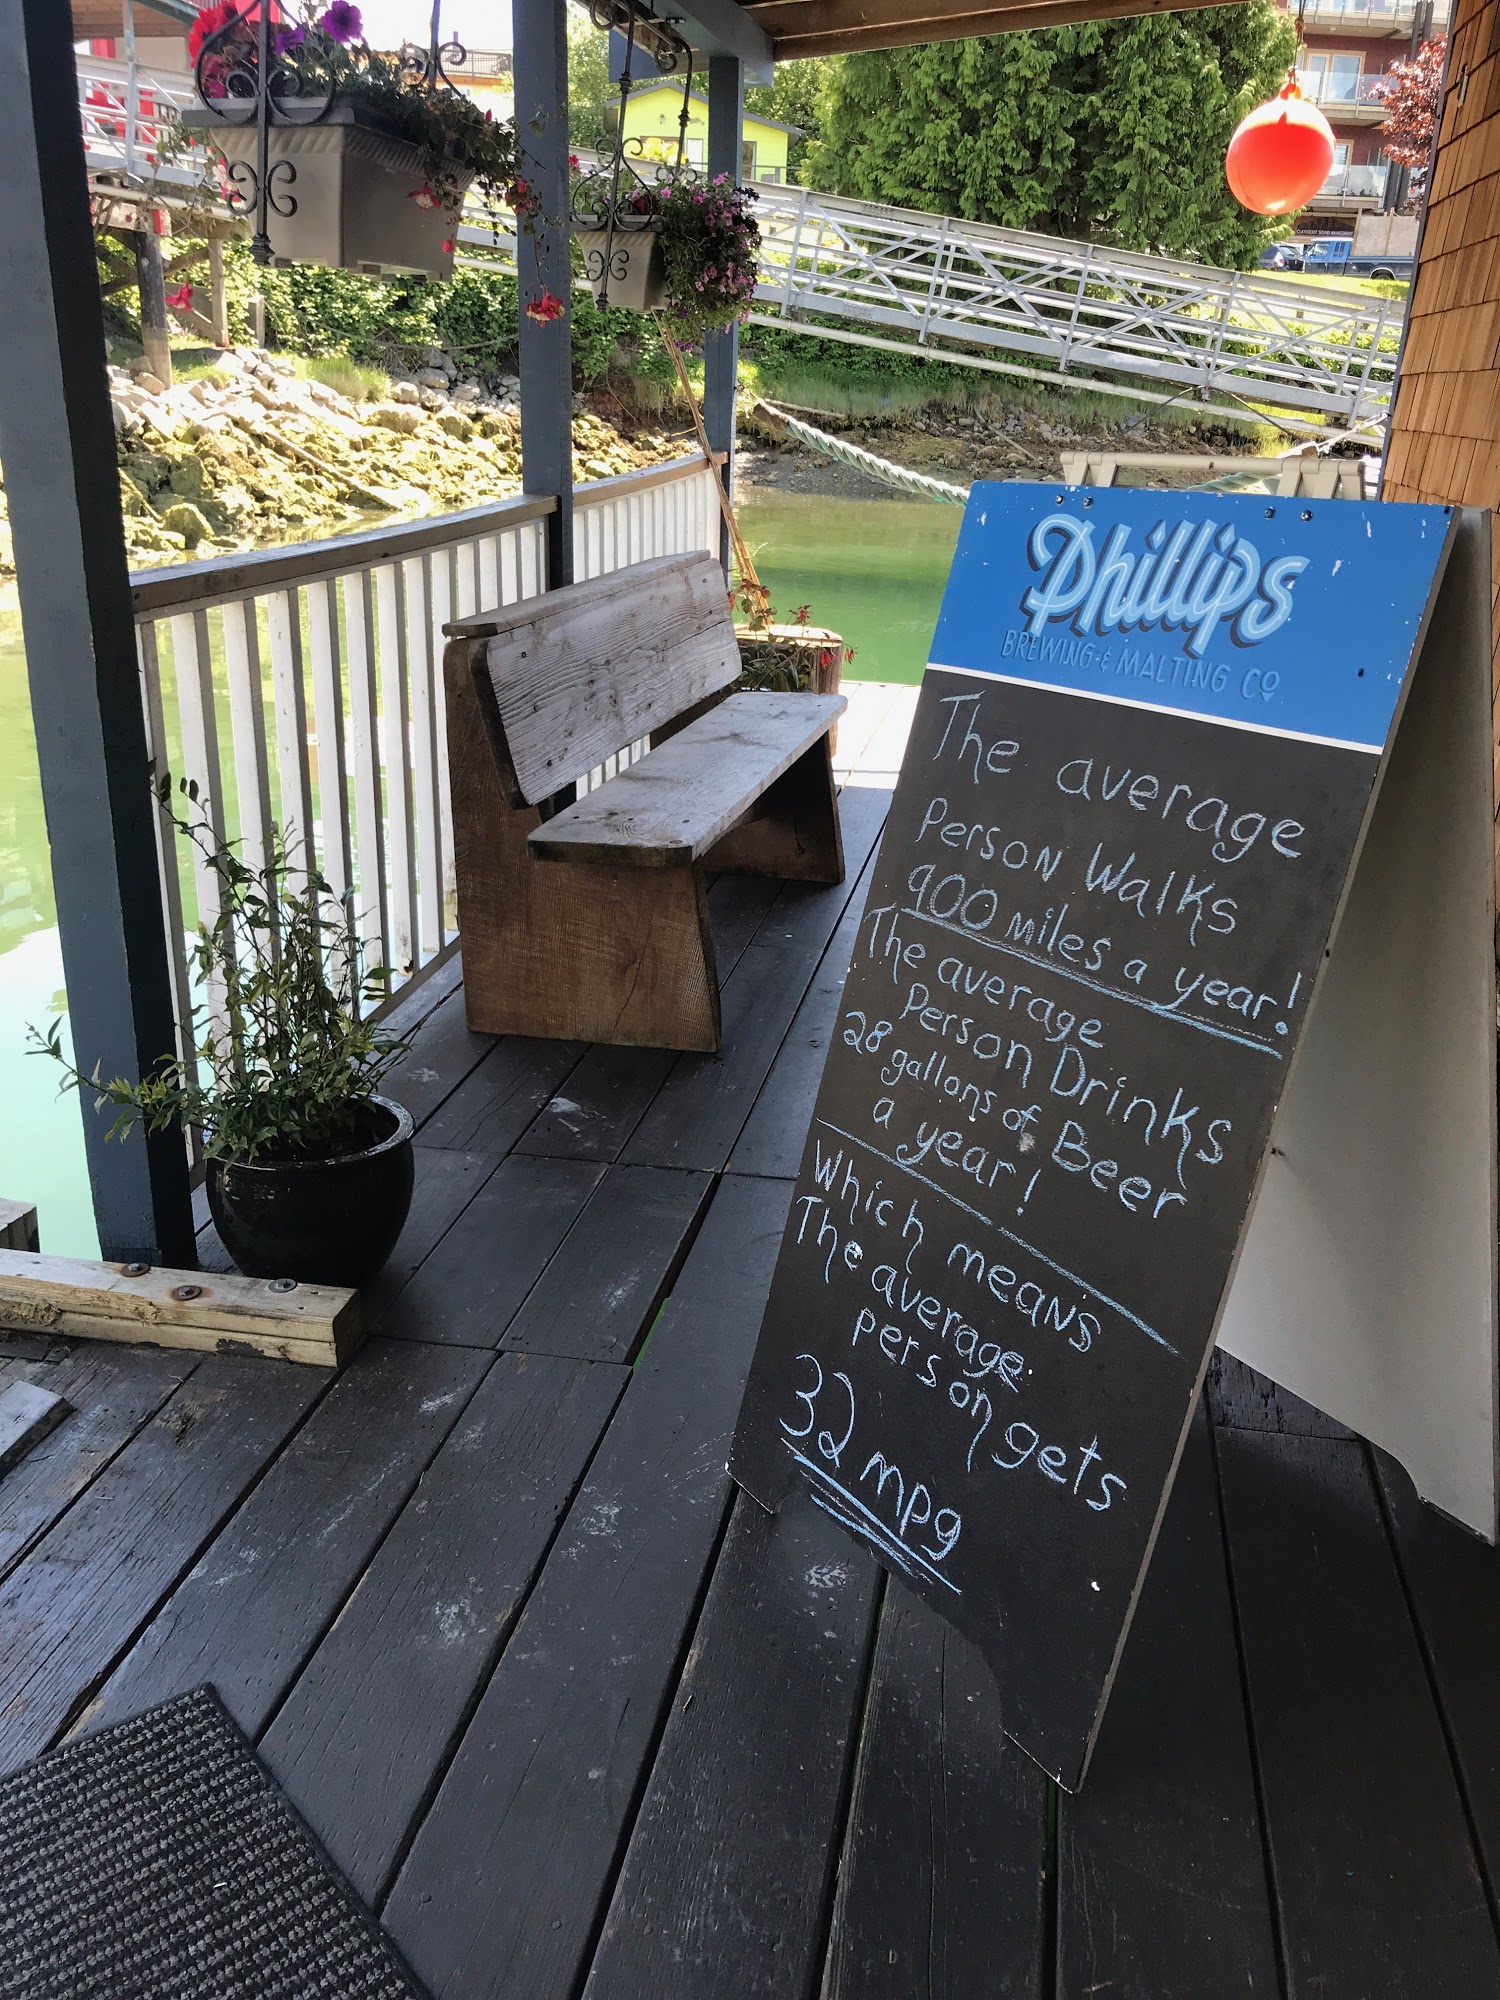 CLAYOQUOT SOUND MANAGEMENT
Phillips
BREWING & MALTING CO
The average
Person Walks
900 miles a year!
The average
Person Drinks
28 gallons of Beer
a year!
Which means
The average
person gets
32 mpg